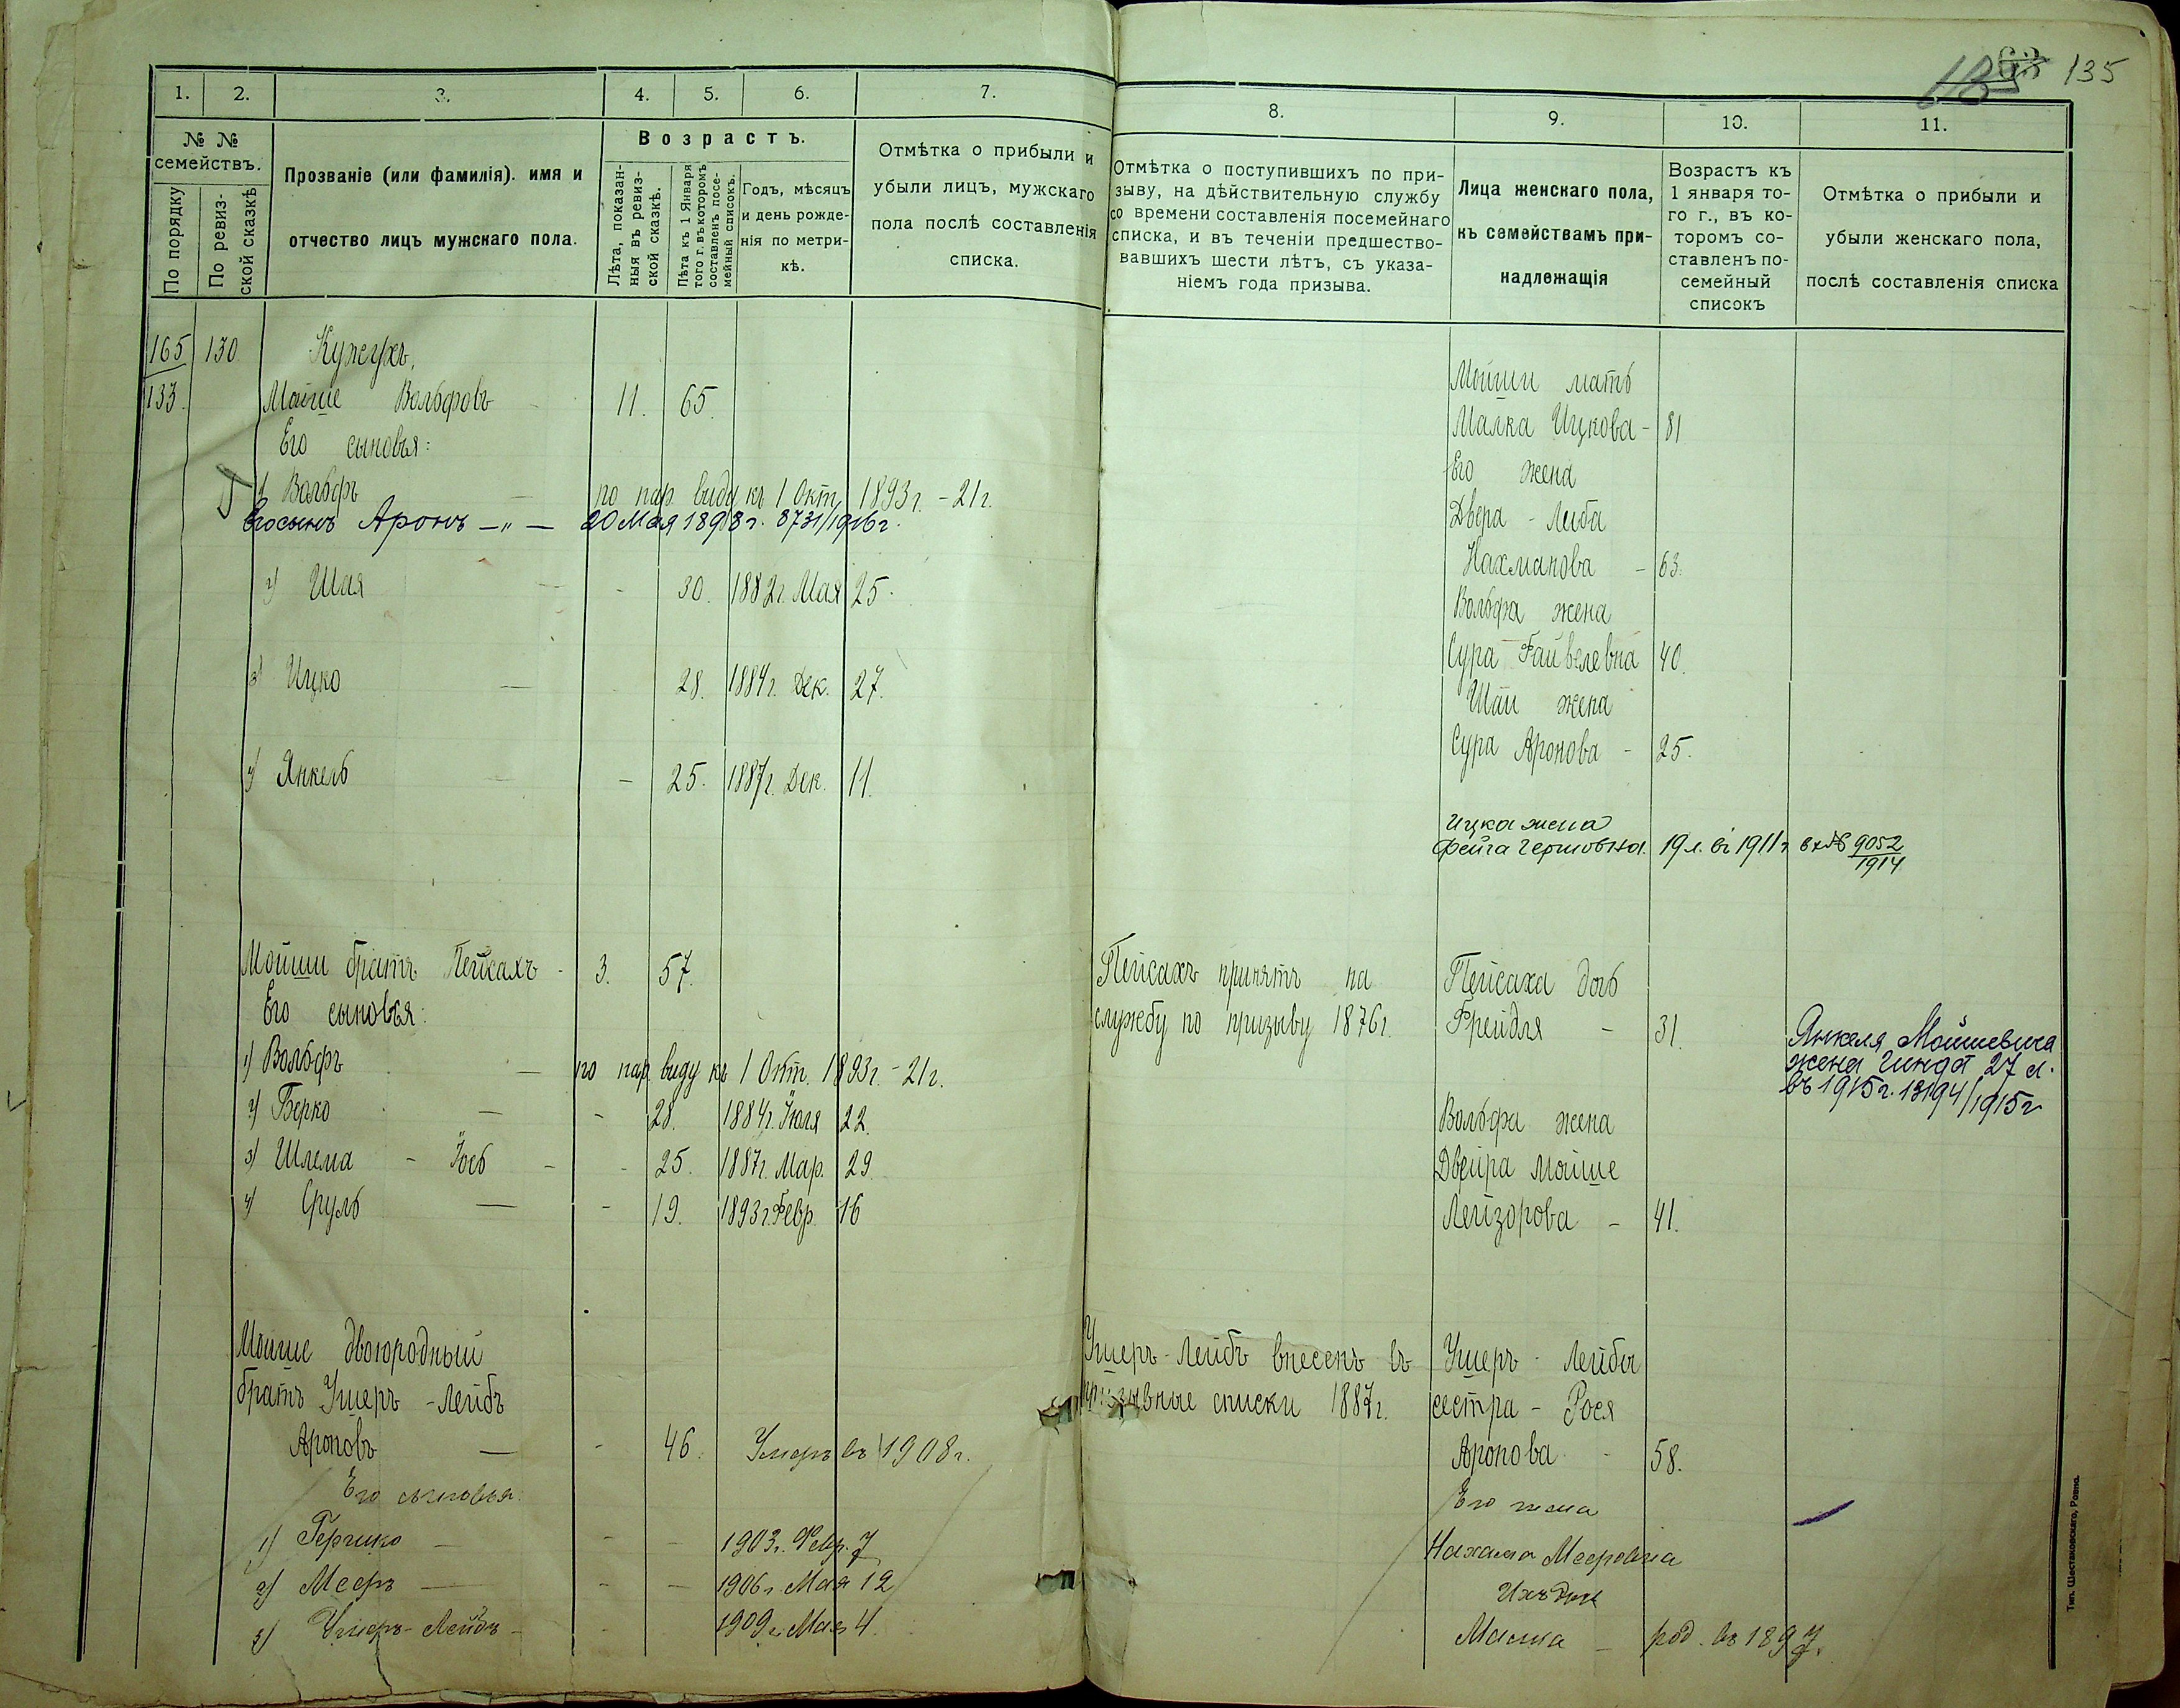 135
1. 2. 3. 4. 5. 6. 7.
№ №
семействъ.
По порядку
По ревиз-
ской сказкѣ
Прозваніе (или фамилія). имя и
отчество лицъ мужскаго пола.
Возрастъ.
Лѣта, показан-
ныя въ ревиз-
ской сказкѣ.
Лѣта къ 1 Января
того г. въ которомъ
составленъ посе-
мейный списокъ.
Годъ, мѣсяцъ
и день рожде-
нія по метри-
кѣ.
Отмѣтка о прибыли и
убыли лицъ, мужскаго
пола послѣ составленія
списка.
165 130
133.
Мойше Вольфовъ 11. 65.
Его сыновья:
1 Вольфъ — по нар. виду къ 1 Окт. 1893г. - 21г.
Его сынъ Аронъ —„— 20 Мая 1898г. 8731/1916г.
2) Шая - 30. 1882г. Мая 25.
3) Ицко — 28. 1884г. Дек. 27.
4) Янкель - 25. 1887г. Дек. 11.
Мойши братъ Пейсахъ - 3. 57.
Его сыновья:
1) Вольфъ — по нар. виду къ 1 Окт. 1893г. - 21г.
2) Берко — - 28. 1884г. Іюля 22.
3) Шлема - Іось - - 25. 1887г. Мар. 29.
4) Сруль — - 19. 1893г. Февр. 16
Мойше двоюродный
братъ Ушеръ - Лейбъ
Ароновъ — - 46. Умеръ въ 1908г.
Его сыновья:
1) Гершко — - - 1903г. Февр. 7
2) Мееръ — - - 1906г. Мая 12
3) Ушеръ-Лейбъ - - 1909г. Мая 4.
8. 9. 10. 11.
Отмѣтка о поступившихъ по при-
зыву, на дѣйствительную службу
со времени составленія посемейнаго
списка, и въ теченіи предшество-
вавшихъ шести лѣтъ, съ указа-
ніемъ года призыва.
Лица женскаго пола,
къ семействамъ при-
надлежащія
Возрастъ къ
1 января то-
го г., въ ко-
торомъ со-
ставленъ по-
семейный
списокъ
Отмѣтка о прибыли и
убыли женскаго пола,
послѣ составленія списка
Мойши мать
Малка Ицкова - 81
Его жена
Двера - Либа
Нахманова - 63.
Вольфа жена
Сура Файвелевна 40.
Шаи жена
Сура Аронова - 25.
Ицка жена
Фейга Гершовна. 19 л. въ 1911г. вх № 9052
1914
Пейсахъ принятъ на
службу по призыву 1876г.
Пейсаха дочь
Фрейдля - 31.
Янкеля Мойшевича
жена Гинда 27 л.
въ 1915г. 13194/1915г
Вольфа жена
Двейра Мойше
Лейзорова - 41.
Ушеръ-Лейбъ внесенъ въ
призывные списки 1887г.
Ушеръ - Лейбы
сестра - Рося
Аронова - 58.
Его жена
Нахама Мееровна
Ихъ дочь
Малка - род. въ 1897.
Тип. Шестаковскаго, Ровна.